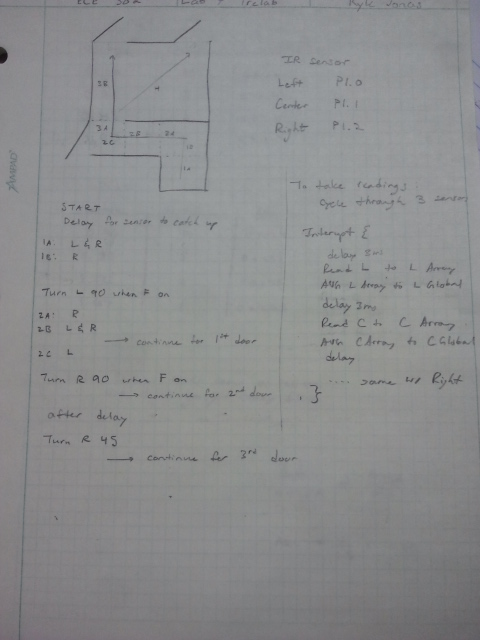 Kyle Jonas
IR sensor
Left P1.0
Center P1.1
Right P1.2
4
3B
3A
2C
2B
2A
1B
1A
START
Delay for sensor to catch up
1A: L & R
1B: R
Turn L 90 when F on
2A: R
2B L & R
→ continue for 1st door
2C L
Turn R 90 when F on
→ continue for 2nd door
after delay
Turn R 45
→ continue for 3rd door
To take readings:
Cycle through 3 sensors
Interupt {
delay 3ms
Read L to L Array
AVG L Array to L Global
delay 3ms
Read C to C Array
AVG C Array to C Global
delay
.... same w/ Right
}